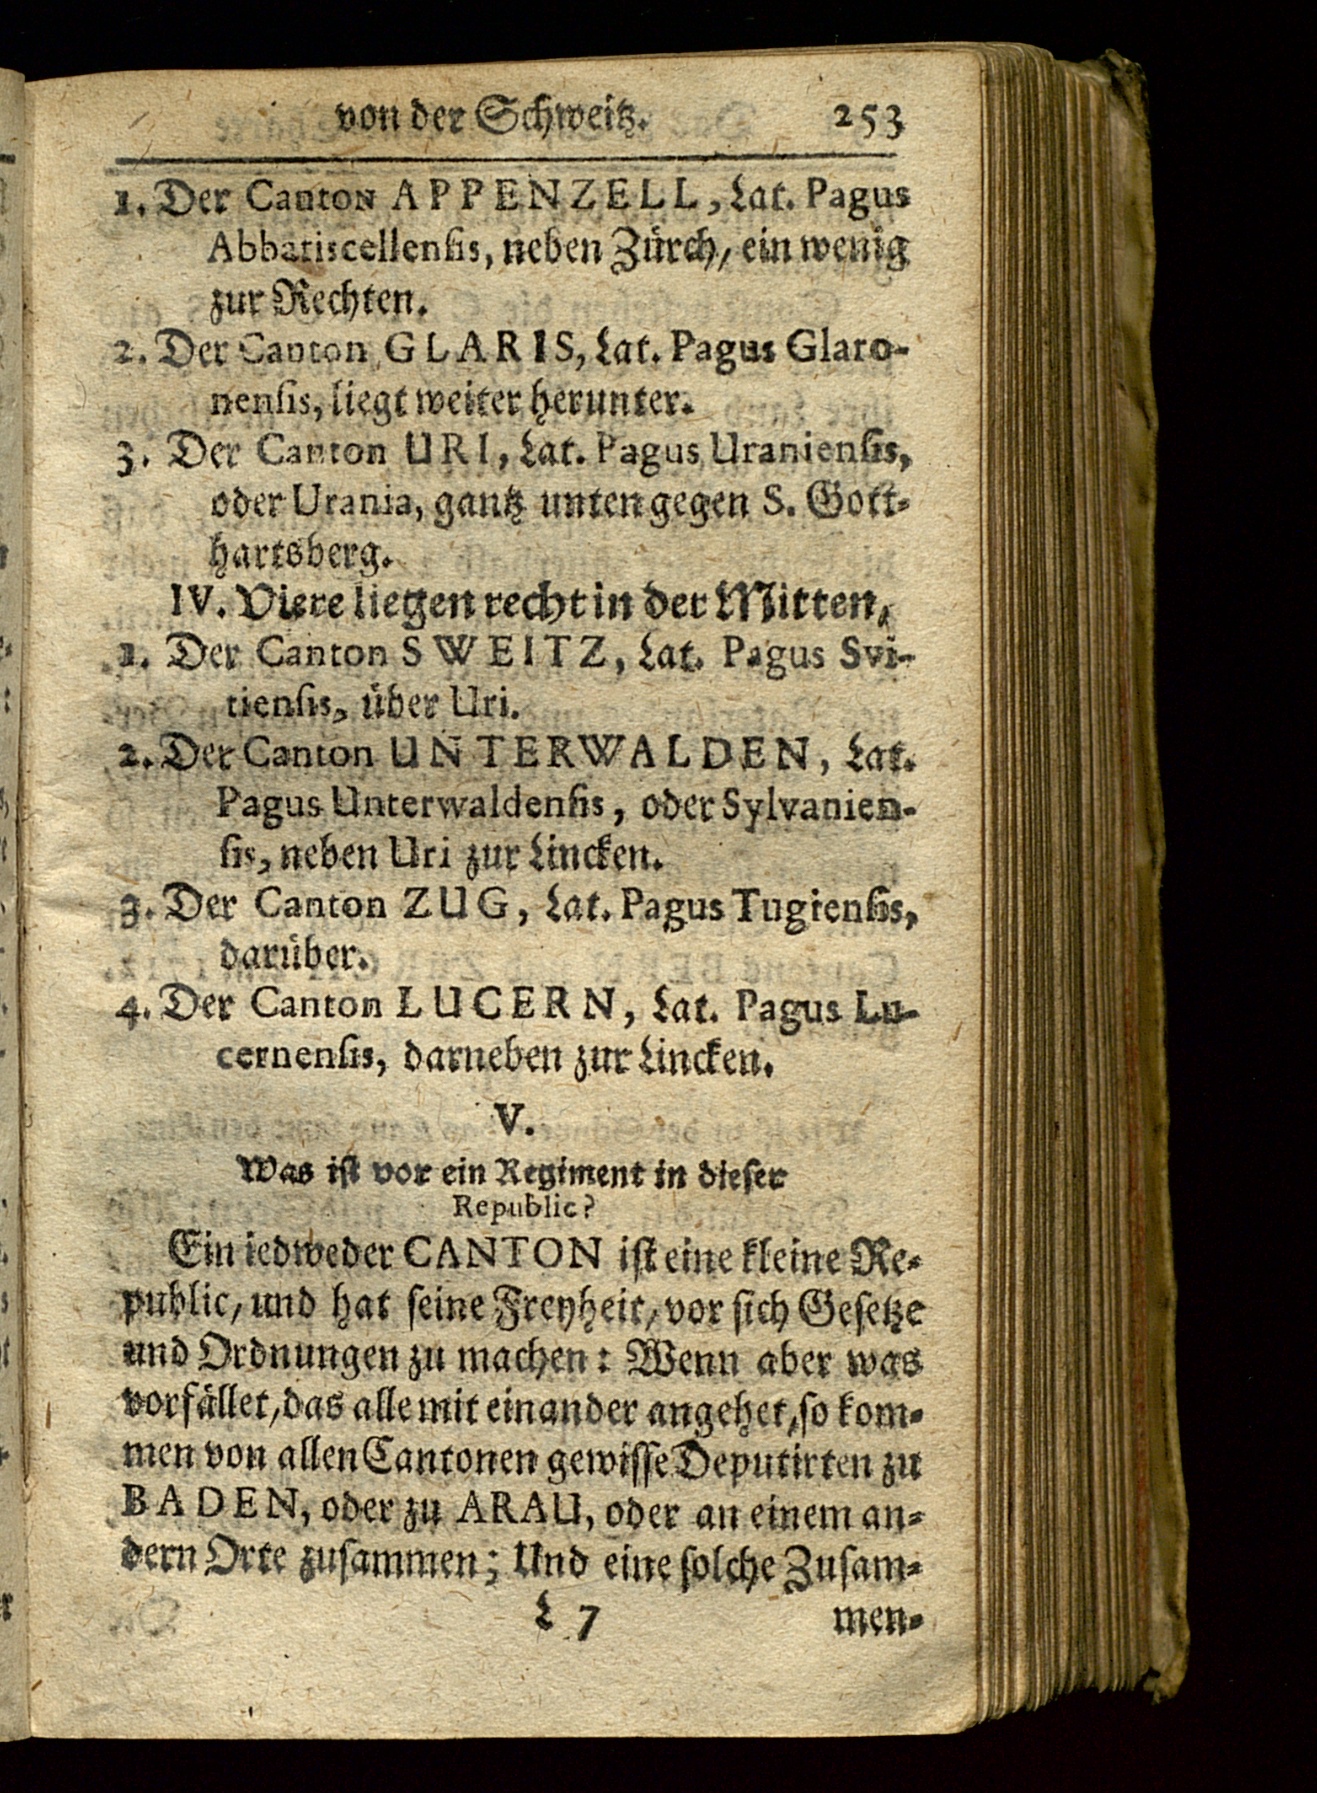 von der Schweitz. 253
1. Der Canton APPENZELL, Lat. Pagus
Abbatiscellensis, neben Zürch, ein wenig
zur Rechten.
2. Der Canton GLARIS, Lat. Pagus Glaro-
nensis, liegt weiter herunter.
3. Der Canton URI, Lat. Pagus Uraniensis,
oder Urania, gantz unten gegen S. Gott-
hartsberg.
IV. Viere liegen recht in der Mitten,
1. Der Canton SWEITZ, Lat. Pagus Svi-
tiensis, über Uri.
2. Der Canton UNTERWALDEN, Lat.
Pagus Unterwaldensis, oder Sylvanien-
sis, neben Uri zur Lincken.
3. Der Canton ZUG, Lat. Pagus Tugiensis,
darüber.
4. Der Canton LUCERN, Lat. Pagus Lu-
cernensis, darneben zur Lincken.
V.
Was ist vor ein Regiment in dieser
Republic?
Ein iedweder CANTON ist eine kleine Re-
public, und hat seine Freyheit, vor sich Gesetze
und Ordnungen zu machen: Wenn aber was
vorfället, das alle mit einander angehet, so kom-
men von allen Cantonen gewisse Deputirten zu
BADEN, oder zu ARAU, oder an einem an-
dern Orte zusammen; Und eine solche Zusam-
L 7 men-